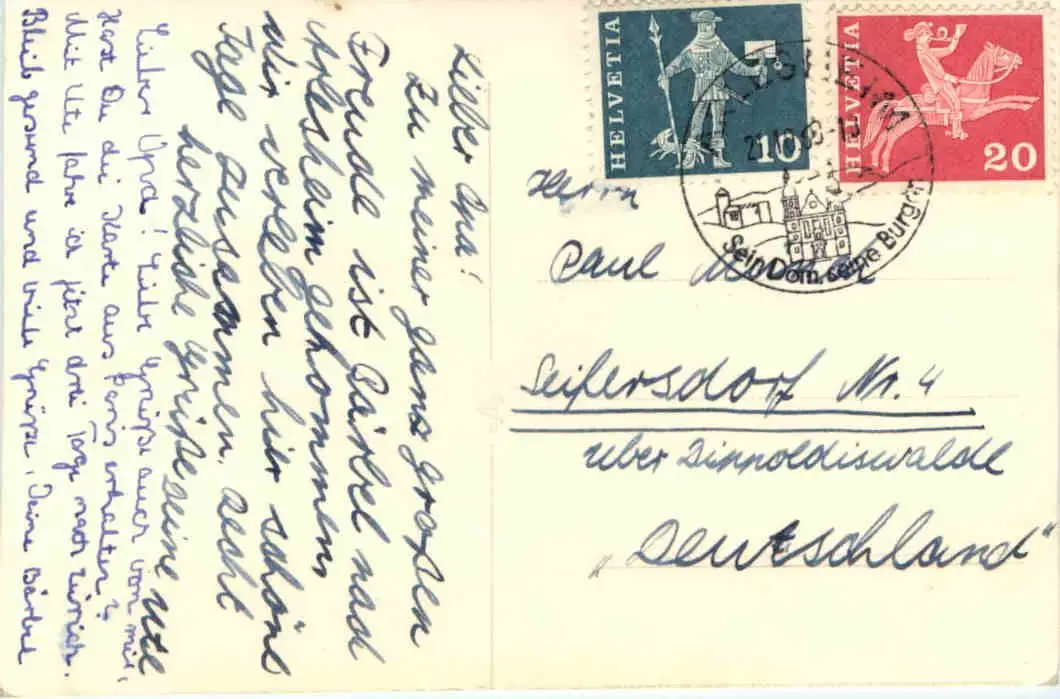 Lieber Opa!
Zu meiner ganz großen
Freude ist Bärbel nach
Arlesheim gekommen,
wir verleben hier schöne
Tage zusammen. Recht
herzliche Grüße Deine Ute
Lieber Opa! Liebe Grüße auch von mir,
Hast Du die Karte aus Paris erhalten?
Mit Ute fahre ich jetzt drei Tage nach Zürich.
Bleib gesund und viele Grüße, Deine Bärbel
HELVETIA
10
HELVETIA
20
ARLESHEIM
Sein Dom, seine Burgen
Herrn
Paul
Seifersdorf Nr. 4
über Dippoldiswalde
"Deutschland"